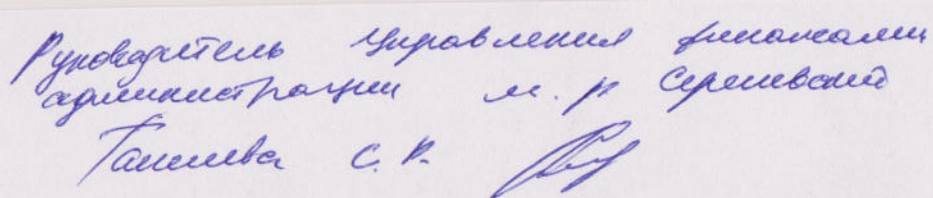 Руководитель управления финансами
администрации м. р Сергиевский
С. Р.